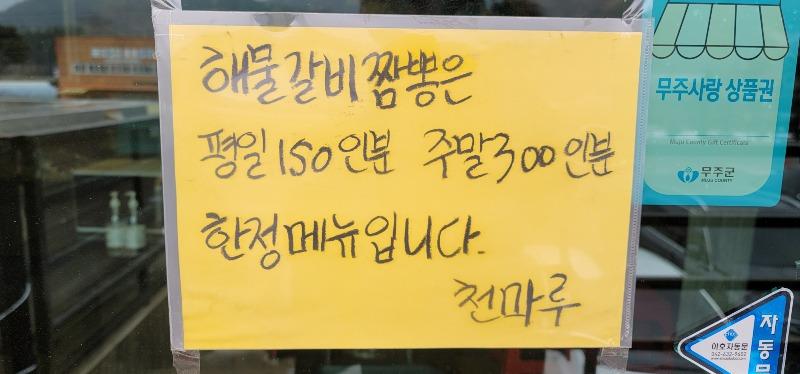 해물갈비짬뽕은
평일 150인분 주말300인분
한정메뉴입니다.
천마루
무주사랑 상품권
Muju County Gift Certificate
무주군
MUJU COUNTY
자동문
이호자동문
042-632-9602